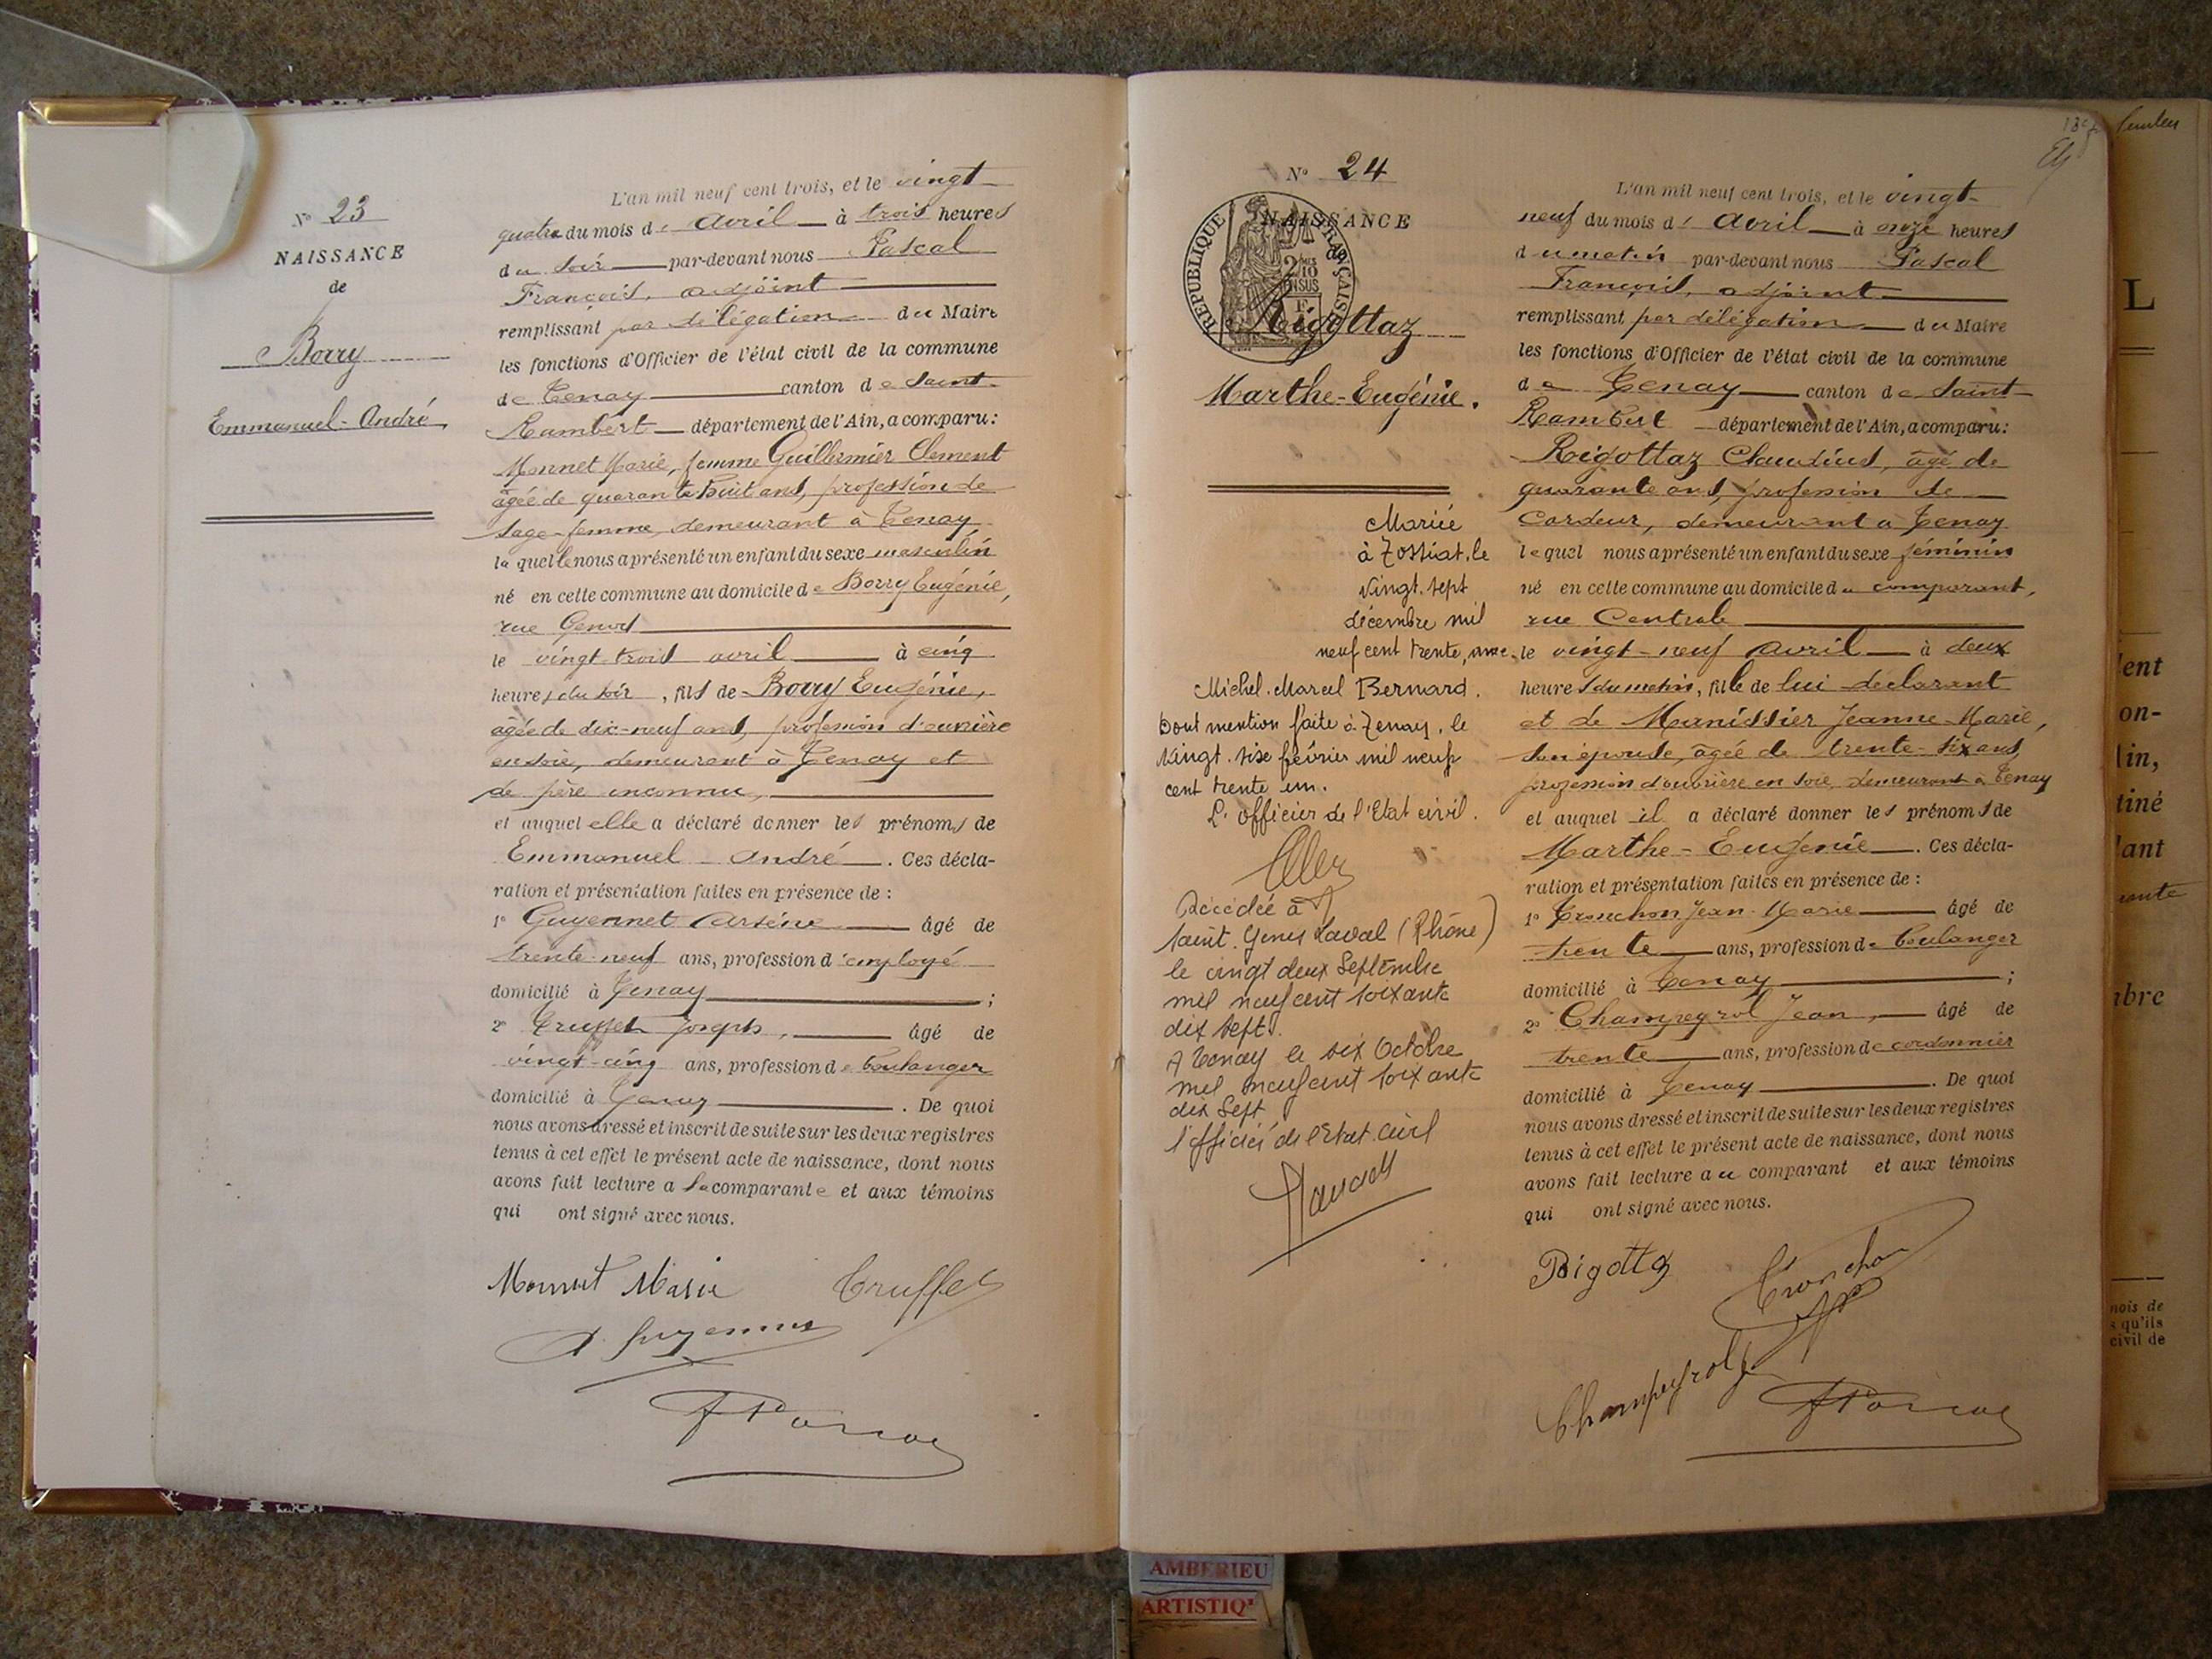 N° 23
NAISSANCE
de
Borry
Emmanuel-André
L'an mil neuf cent trois, et le vingt
quatre du mois d' avril à trois heures
du soir par-devant nous Pascal
François, adjoint
remplissant par délégation du Maire
les fonctions d'Officier de l'état civil de la commune
de Tenay canton de Saint-
Rambert département de l'Ain, a comparu:
Monnet Marie, femme Guillermier Clement
âgée de quarante huit ans, profession de
sage-femme, demeurant à Tenay
laquelle nous a présenté un enfant du sexe masculin
né en cette commune au domicile de Borry Eugénie,
rue
le vingt-trois avril à cinq
heures du soir, fils de Borry Eugénie,
âgée de dix-neuf ans, profession d'ouvrière
en soie, demeurant à Tenay et
de père inconnu,
et auquel elle a déclaré donner les prénoms de
Emmanuel André. Ces décla-
ration et présentation faites en présence de :
1° Guyennet Arsène âgé de
trente-neuf ans, profession d'employé
domicilié à Tenay ;
2° Truffet Joseph, âgé de
vingt-cinq ans, profession de boulanger
domicilié à Tenay. De quoi
nous avons dressé et inscrit de suite sur les deux registres
tenus à cet effet le présent acte de naissance, dont nous
avons fait lecture a la comparante et aux témoins
qui ont signé avec nous.
Monnet Marie Truffet
A. Guyennet
F Pascal
N° 24
NAISSANCE
de
REPUBLIQUE FRANÇAISE
2/10
EN SUS
Rigottaz
Marthe-Eugénie.
Mariée
à Zossiat, le
vingt-sept
décembre mil
neuf cent trente, avec
Michel-Marcel Bernard.
Dont mention faite à Tenay, le
vingt-six février mil neuf
cent trente un.
L'officier de l'Etat civil.
Décédée à
Saint-Genis Laval (Rhône)
le vingt deux Septembre
mil neuf cent soixante
dix sept.
A Tenay le six Octobre
mil neuf cent soixante
dix sept
l'officier de l'Etat civil
L'an mil neuf cent trois, et le vingt-
neuf du mois d' avril à onze heures
du matin par-devant nous Pascal
François, adjoint
remplissant par délégation du Maire
les fonctions d'Officier de l'état civil de la commune
de Tenay canton de Saint-
Rambert département de l'Ain, a comparu:
Rigottaz Claudius, âgé de
quarante ans, profession de
cardeur, demeurant à Tenay
lequel nous a présenté un enfant du sexe féminin
né en cette commune au domicile du comparant,
rue Centrale
le vingt-neuf avril à deux
heures du matin, fille de lui déclarant
et de Manissier Jeanne-Marie,
son épouse, âgée de trente-six ans,
profession d'ouvrière en soie, demeurant à Tenay
et auquel il a déclaré donner les prénoms de
Marthe-Eugénie. Ces décla-
ration et présentation faites en présence de :
1° Tronchon Jean-Marie âgé de
trente ans, profession de boulanger
domicilié à Tenay ;
2° Champeyrol Jean, âgé de
trente ans, profession de cordonnier
domicilié à Tenay. De quoi
nous avons dressé et inscrit de suite sur les deux registres
tenus à cet effet le présent acte de naissance, dont nous
avons fait lecture au comparant et aux témoins
qui ont signé avec nous.
Rigottaz Tronchon
Champeyrol
F Pascal
L
ent
on-
lin,
tiné
ant
bre
mois de
s qu'ils
civil de
AMBERIEU
ARTISTIQ